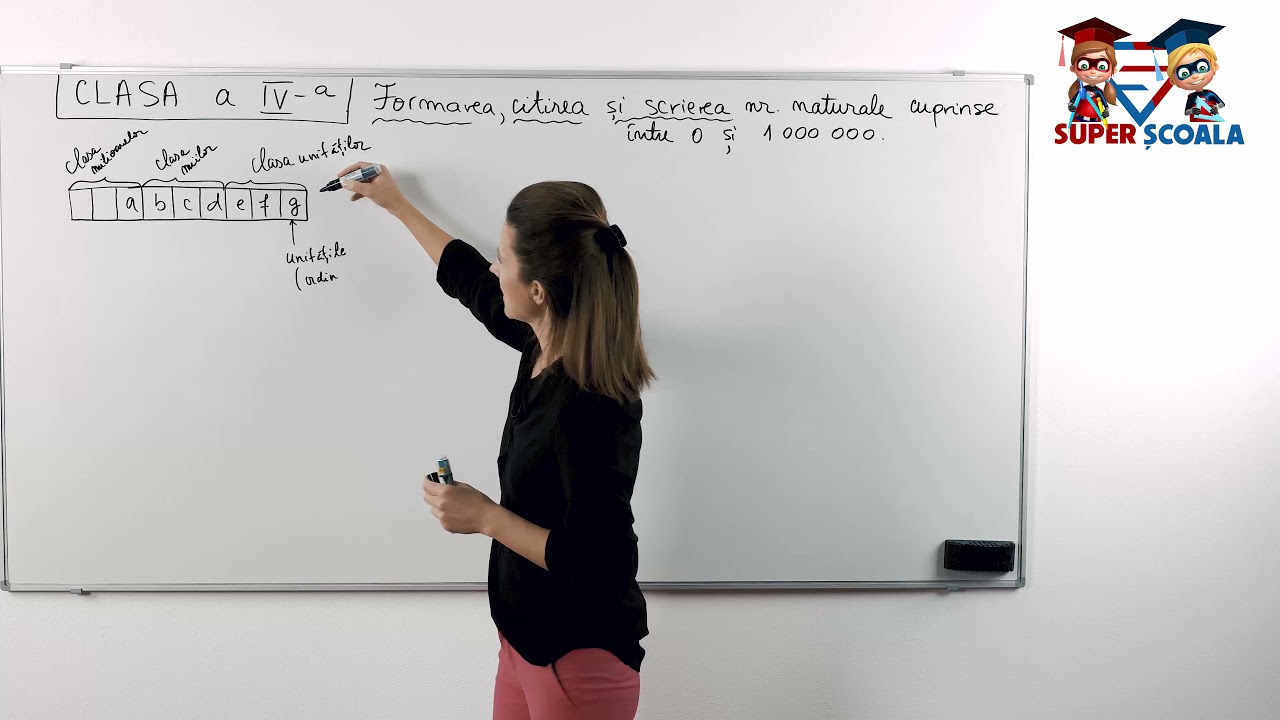 CLASA a IV-a
Formarea, citirea și scrierea nr. naturale cuprinse
între 0 și 1 000 000.
clasa milioanelor
clasa miilor
clasa unităților
a b c d e f g
unitățile
(ordin
SUPER ȘCOALA